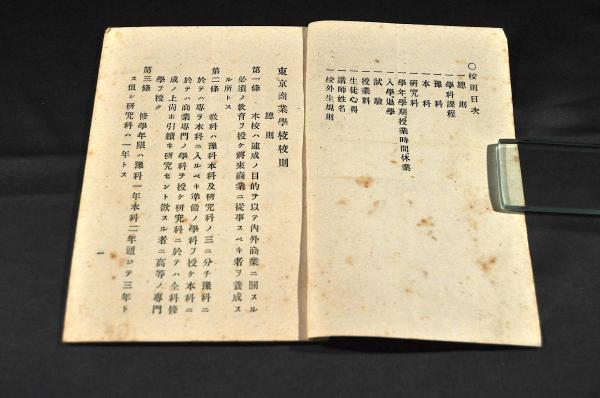 〇校則目次
一總則
一學科課程
一豫科
一本科
一研究科
一學年學期授業時間休業
一入學退學
一試驗
一授業料
一生徒心得
一講師姓名
一校外生規則
東京商業學校校則
總則
第一條 本校ハ速成ノ目的ヲ以テ內外商業ニ關スル
必須ノ教育ヲ授ケ將來商業ニ從事スベキ者ヲ養成ス
ル所トス
第二條 教科ハ豫科本科及研究科ノ三ニ分チ豫科ニ
於テハ專ラ本科ニ入ルベキ準備ノ學科ヲ授ケ本科ニ
於テハ商業專門ノ學科ヲ授ケ研究科ニ於テハ全科修
成ノ上尚ホ引續キ研究セント欲スル者ニ高等ノ專門
學ヲ授ク
第三條 修學年限ハ豫科一年本科二年通ジテ三年ト
ス但シ研究科ハ一年トス
一